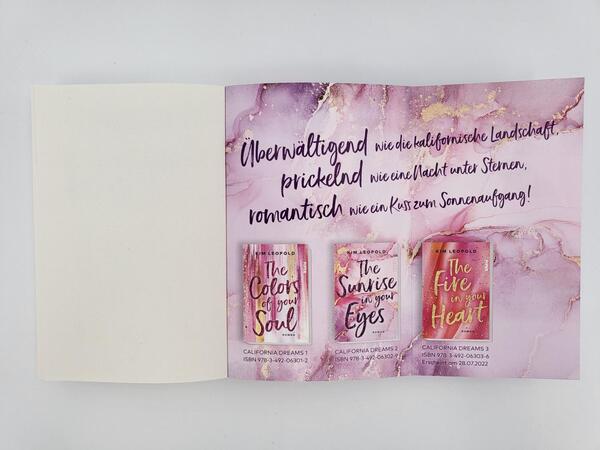 Überwältigend wie die kalifornische Landschaft,
prickelnd wie eine Nacht unter Sternen,
romantisch wie ein Kuss zum Sonnenaufgang!
KIM LEOPOLD
The
Colors
of your
Soul
ROMAN
KIM LEOPOLD
The
Sunrise
in your
Eyes
ROMAN
KIM LEOPOLD
The
Fire
in your
Heart
ROMAN
CALIFORNIA DREAMS 1
ISBN 978-3-492-06301-2
CALIFORNIA DREAMS 2
ISBN 978-3-492-06302-9
CALIFORNIA DREAMS 3
ISBN 978-3-492-06303-6
Erscheint am 28.07.2022